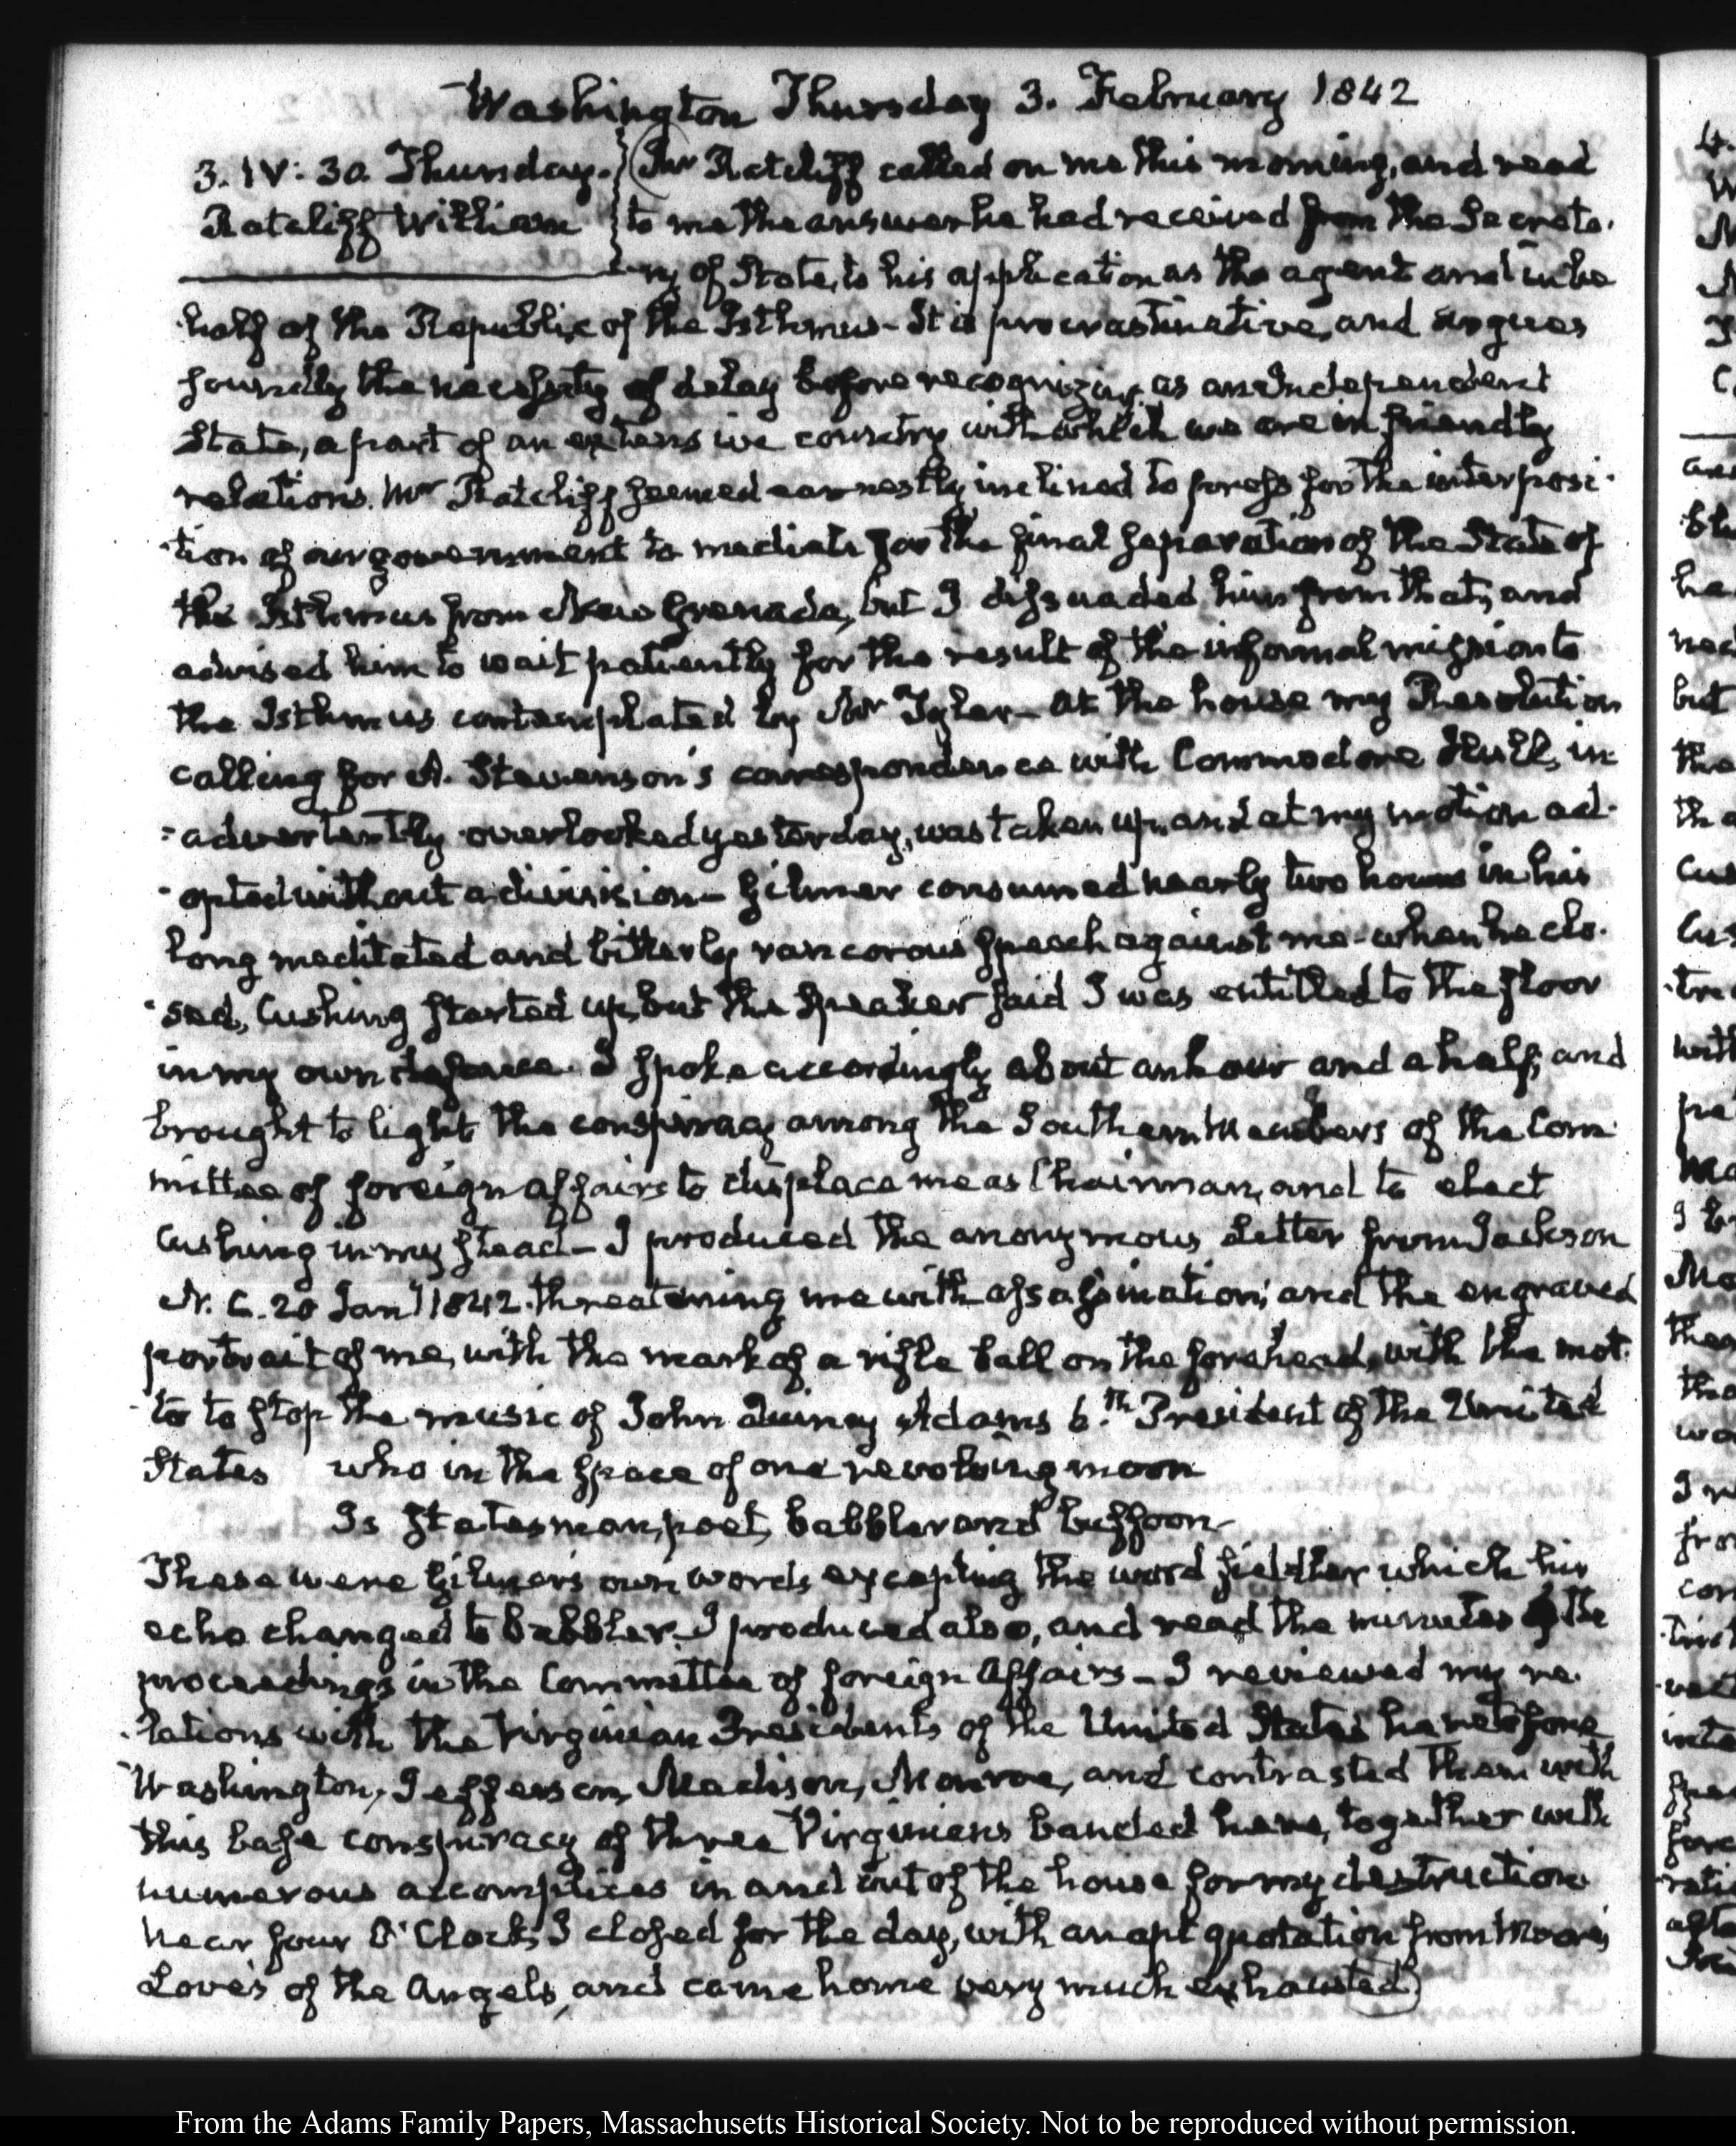 Washington Thursday 3. February 1842
3. IV: 30. Thursday.
Ratcliff William
Mr Ratcliff called on me this morning, and read
to me the answer he had received from the Secreta-
-ry of State, to his application as the agent and in be
half of the Republic of the Isthmus - It is procrastinative, and argues
soundly the necessity of delay before recognizing as an Independent
State, a part of an extensive country with which we are in friendly
relations. Mr Ratcliff seemed earnestly inclined to press for the interposi-
-tion of our government to mediate for the final separation of the State of
the Isthmus from New Grenada, but I dissuaded him from that, and
advised him to wait patiently for the result of the informal mission to
the Isthmus contemplated by Mr Tyler - At the house my Resolution
calling for A. Stevenson's correspondence with Commodore Hull, in
-advertently overlooked yesterday, was taken up, and at my motion ad-
-opted without a division - Gilmer consumed nearly two hours in his
long meditated and bitterly rancorous speech against me - when he clo-
-sed, Cushing started up, but the Speaker said I was entitled to the floor
in my own defence. I spoke accordingly about an hour and a half, and
brought to light the conspiracy among the Southern Members of the Com-
mittee of foreign affairs to displace me as Chairman, and to elect
Cushing in my stead - I produced the anonymous Letter from Jackson
N. C. 20 Jany 1842. threatening me with assassination; and the engraved
portrait of me, with the mark of a rifle ball on the forehead, with the mot-
-to to stop the music of John Quincy Adams 6.th President of the United
States who in the space of one revolving moon
Is statesman, poet, babbler and buffoon -
These were Gilmer's own words, excepting the word fiddler which his
echo changed to babbler. I produced also, and read the minutes of the
proceedings in the Committee of foreign Affairs - I reviewed my re-
-lations with the Virginian Presidents of the United States heretofore
Washington, Jefferson, Madison, Monroe, and contrasted them with
this base conspiracy of three Virginians banded here, together with
numerous accomplices in and out of the house for my destruction.
Near four O'Clock, I closed for the day, with an apt quotation from Moore's
Loves of the Angels, and came home very much exhausted
From the Adams Family Papers, Massachusetts Historical Society. Not to be reproduced without permission.